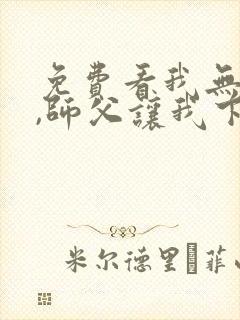 免費看我無
,師父讓我下
米尔德里·菲